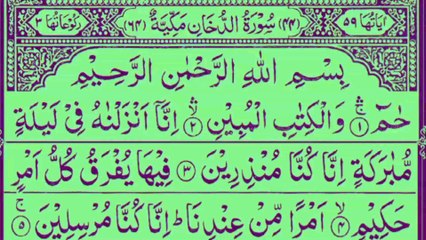 اٰیَاتُهَا ٥٩ (٤٤) سُوْرَةُ الدُّخَانِ مَكِّيَّةٌ (٦٤) رُكُوْعَاتُهَا ٣
بِسْمِ اللّٰهِ الرَّحْمٰنِ الرَّحِيْمِ
حٰمٓ ۚۛ ١ وَالْكِتٰبِ الْمُبِيْنِ ۙۛ ٢ اِنَّاۤ اَنْزَلْنٰهُ فِيْ لَيْلَةٍ
مُّبٰرَكَةٍ اِنَّا كُنَّا مُنْذِرِيْنَ ٣ فِيْهَا يُفْرَقُ كُلُّ اَمْرٍ
حَكِيْمٍ ۙ ٤ اَمْرًا مِّنْ عِنْدِنَا ؕ اِنَّا كُنَّا مُرْسِلِيْنَ ۚ ٥